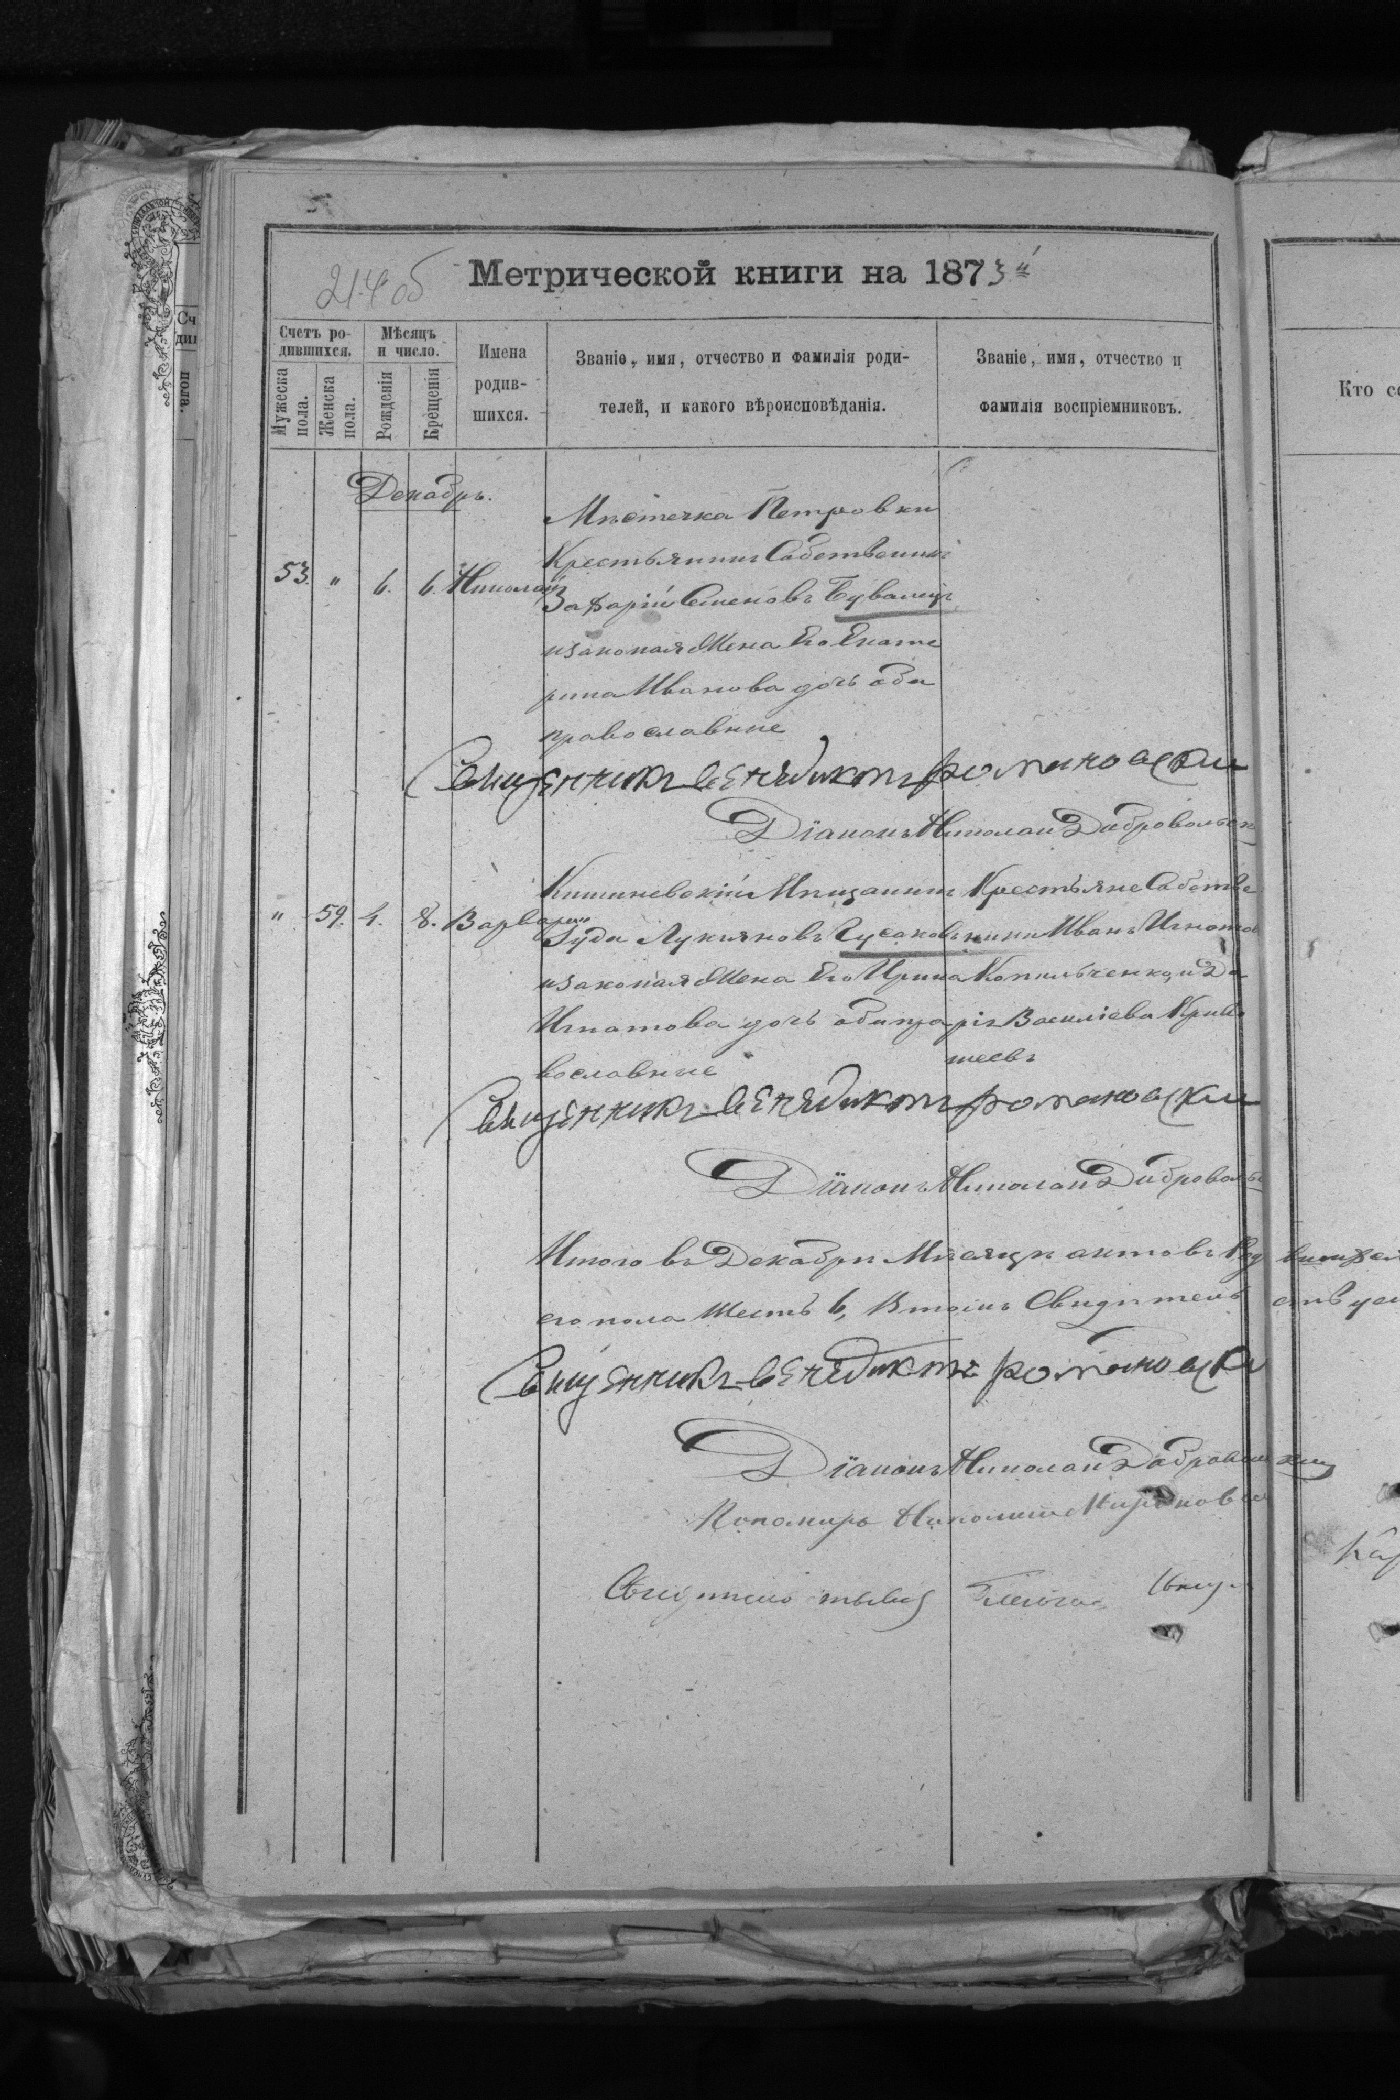 214 об
Метрической книги на 1873й
Счетъ ро-
дившихся.
Мужеска
пола.
Женска
пола.
Мѣсяцъ
и число.
Рожденія
Крещенія
Имена
родив-
шихся.
Званіе, имя, отчество и фамилія роди-
телей, и какого вѣроисповѣданія.
Званіе, имя, отчество и
фамилія воспріемниковъ.
Кто со
Декабрь.
53. " 6. 6. Николай
Мѣстечка Петровки
Крестьянинъ Собственникъ
Захарій Семеновъ
изаконая Жена Его Екате
рина Иванова дочь оба
православные
Священникъ Венедиктъ Романовски
Діаконъ Николай Добровольск
" 59. 4. 8. Варвара
Кишиневскій Мѣщанинъ
Іуда Лукияновъ Гусаковъ
изаконая Жена Его Ирина
Игнатова дочь оба пра
вославные
Крестьяне Собстве
ники Иванъ Игнато
Копыльченко, и Да
рія Василіева Криво
шеевъ
Священникъ Венедиктъ Романовски
Діаконъ Николай Доброволь
Итого въ Декабрѣ Мѣсяцѣ актовъ
его пола Шесть 6, Втомъ Свидѣтель
Священникъ Венедиктъ Романовск
Діаконъ Николай Добровольскій
Пономарь